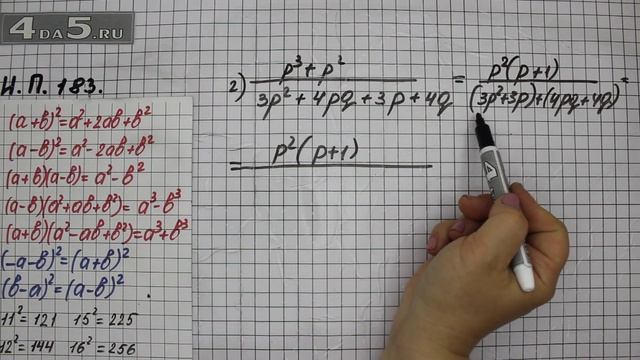 4DA5.RU
И.П. 183.
(a+b)²=a²+2ab+b²
(a-b)²=a²-2ab+b²
(a+b)(a-b)=a²-b²
(a-b)(a²+ab+b²)=a³-b³
(a+b)(a²-ab+b²)=a³+b³
(-a-b)²=(a+b)²
(b-a)²=(a-b)²
11²=121 15²=225
12²=144 16²=256
2) p³+p² / 3p²+4pq+3p+4q = p²(p+1) / (3p²+3p)+(4pq+4q) =
= p²(p+1)